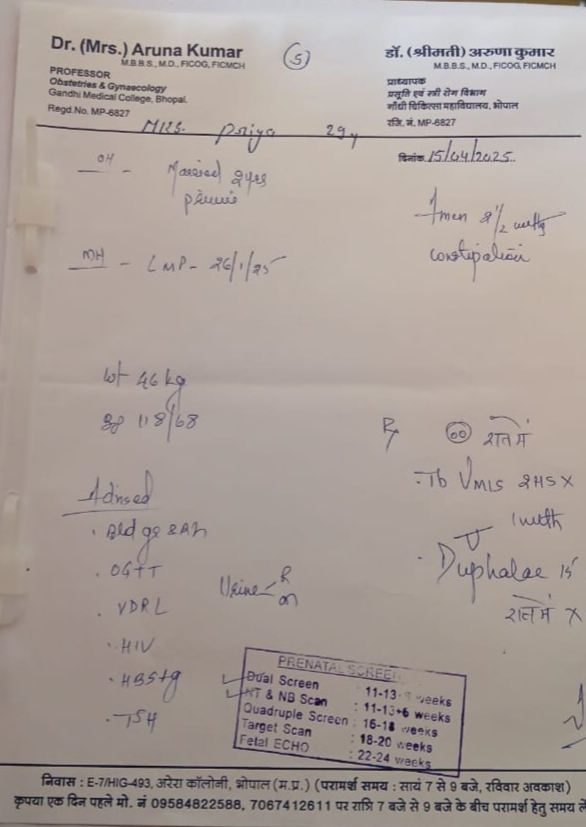 Dr. (Mrs.) Aruna Kumar
M.B.B.S., M.D., FICOG, FICMCH
PROFESSOR
Obstetrics & Gynaecology
Gandhi Medical College, Bhopal.
Regd.No. MP-6827
5
डॉ. (श्रीमती) अरुणा कुमार
M.B.B.S., M.D., FICOG, FICMCH
प्राध्यापक
प्रसूति एवं स्त्री रोग विभाग
गाँधी चिकित्सा महाविद्यालय, भोपाल
रजि. नं. MP-6827
Mrs. Priya 29y
दिनांक 15/04/2025
OH - Married 2yrs
primi
Amen 2 1/2 mths
constipation
MH - LMP - 26/1/25
Wt 46 kg
BP 118/68
Advised
OGTT
VDRL
HIV
HBSAg
TSH
Urine < R
M
Rx
रात में
1 mth
Duphalac 15
रात में X
PRENATAL SCREEN
Dual Screen : 11-13+6 weeks
NT & NB Scan : 11-13+6 weeks
Quadruple Screen : 16-18 weeks
Target Scan : 18-20 weeks
Fetal ECHO : 22-24 weeks
निवास : E-7/HIG-493, अरेरा कॉलोनी, भोपाल (म.प्र.) (परामर्श समय : सायं 7 से 9 बजे, रविवार अवकाश)
कृपया एक दिन पहले मो. नं 09584822588, 7067412611 पर रात्रि 7 बजे से 9 बजे के बीच परामर्श हेतु समय लें